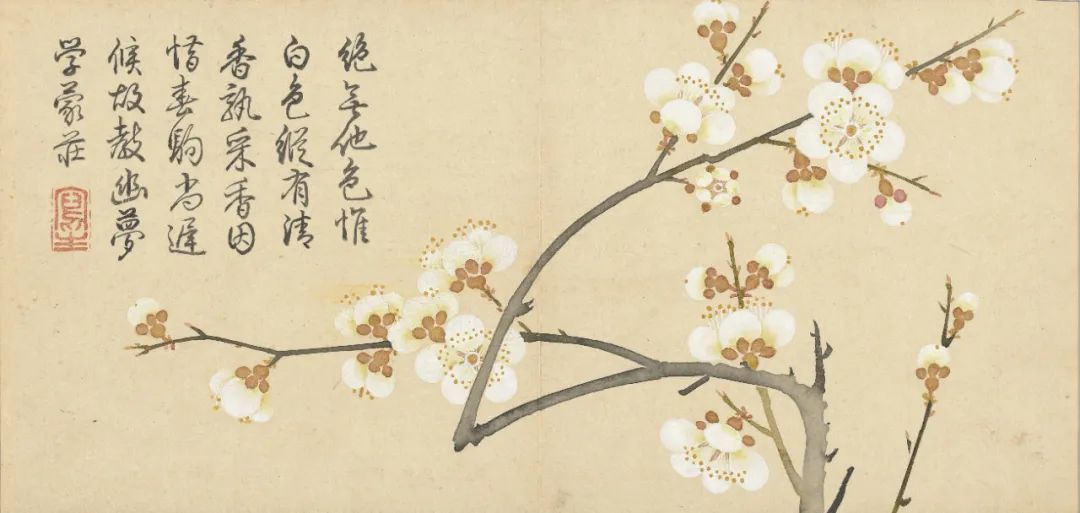 絕無他色惟
白色縱有清
香孰采香因
惜春駒尚遲
候故教幽夢
学蒙莊